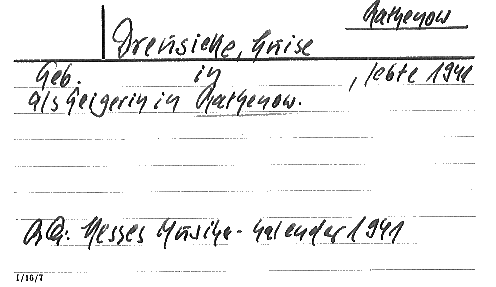 Rathenow
Drensicke, Luise
Geb. in , lebte 1941
als Geigerin in Rathenow.
Qu: Hesses Musiker-Kalender 1941
I/16/7